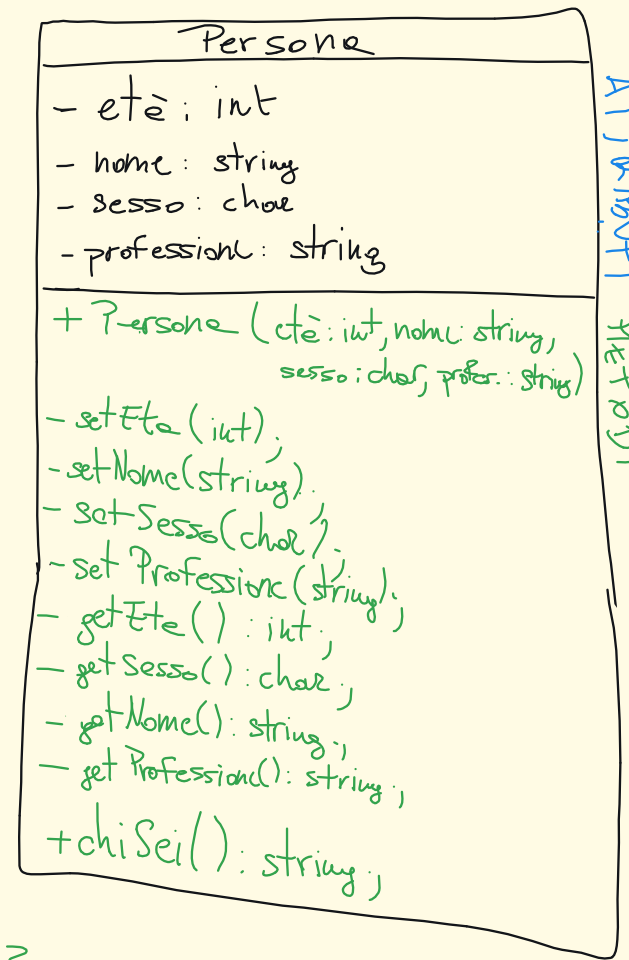 Persona
- età : int
- nome : string
- sesso : char
- professione : string
+ Persona (età : int, nome : string,
sesso : char, profes. : string)
- setEta (int) ;
- setNome(string) ;
- setSesso(char) ;
- set Professione (string) ;
- getEta () : int ;
- getSesso() : char ;
- getNome() : string ;
- get Professione() : string ;
+ chiSei() : string ;
METODI